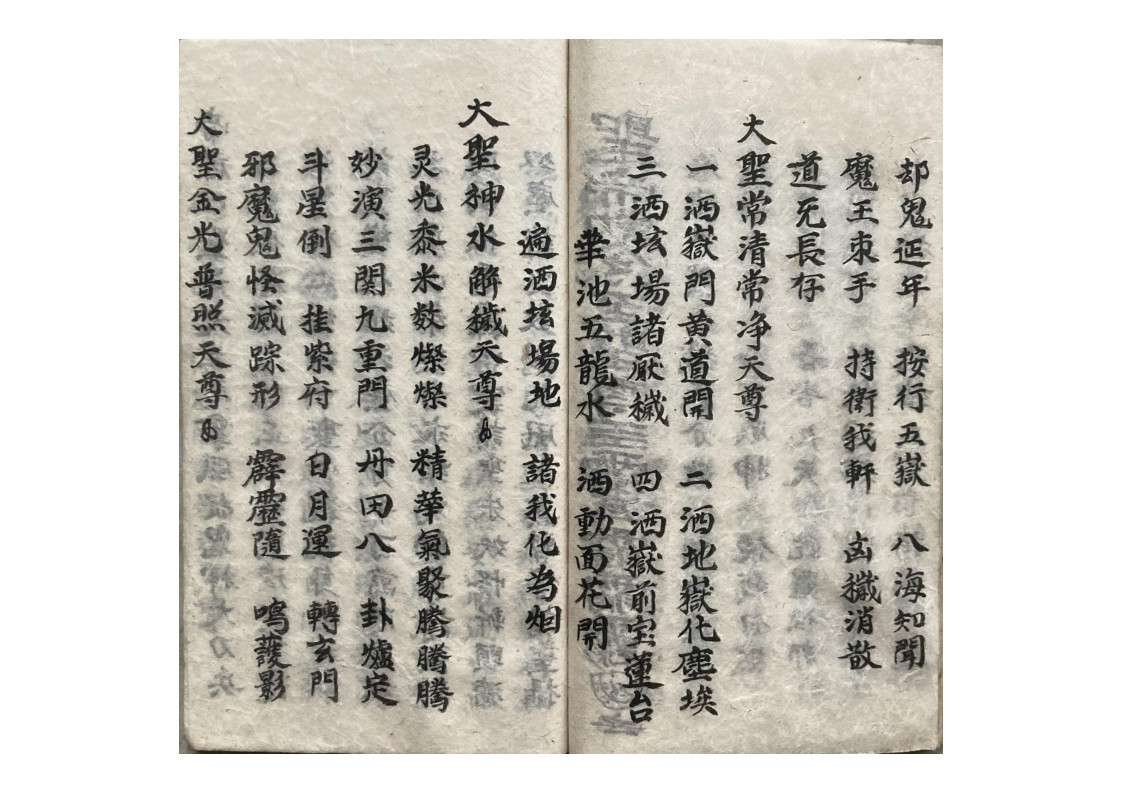 却鬼延年 按行五嶽 八海知聞
魔王束手 持衛我軒 凶穢消散
道炁長存
大聖常清常净天尊
一洒嶽門黄道開 二洒地嶽化塵埃
三洒垓場諸厭穢 四洒嶽前宝蓮台
華池五龍水 洒動面花開
遍洒垓場地 諸我化為烟
大聖神水解穢天尊
灵光黍米数燦燦 精華氣聚騰騰騰
妙演三関九重門 丹田八卦爐定
斗星倒 挂紫府 日月運轉玄門
邪魔鬼怪滅踪形 霹靂隨 鳴護影
大聖金光普照天尊